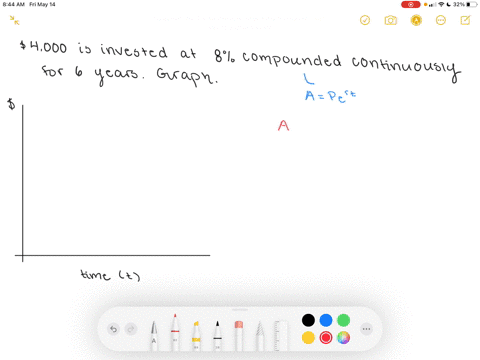 8:44 AM Fri May 14
32%
$4,000 is invested at 8% compounded continuously
for 6 years. Graph.
A = Pe^rt
$
A
time (t)